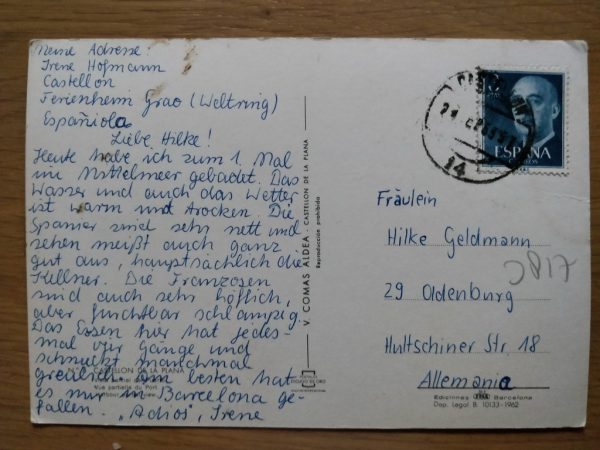 Meine Adresse:
Irene Hofmann
Castellon
Ferienheim Grao (Weltring)
Española
Liebe Hilke!
Heute habe ich zum 1. Mal
im Mittelmeer gebadet. Das
Wasser und auch das Wetter
ist warm und trocken. Die
Spanier sind sehr nett und
sehen meißt auch ganz
gut aus, hauptsächlich die
Kellner. Die Franzosen
sind auch sehr höflich,
aber furchtbar schlampig.
Das Essen hier hat jedes-
mal vier Gänge und
schmeckt manchmal
greulich. Am besten hat
es mir in Barcelona ge-
fallen. „Adios", Irene
CASTELLON DE LA PLANA
Vue partielle du Port
V. COMAS ALDEA - CASTELLON DE LA PLANA
Reproducción prohibida
ESPAÑA
CORREOS
14
Fräulein
Hilke Geldmann
29 Oldenburg
Hultschiner Str. 18
Allemania
Ediciones Barcelona
Dep. Legal B. 10133-1962